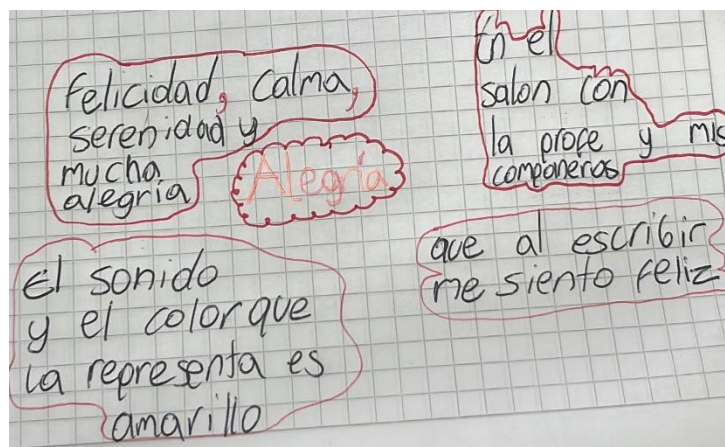 felicidad, calma,
serenidad y
mucha
alegria
Alegría
En el
salon con
la profe y mis
componeros
El sonido
y el color que
la representa es
amarillo
que al escribir
me siento feliz